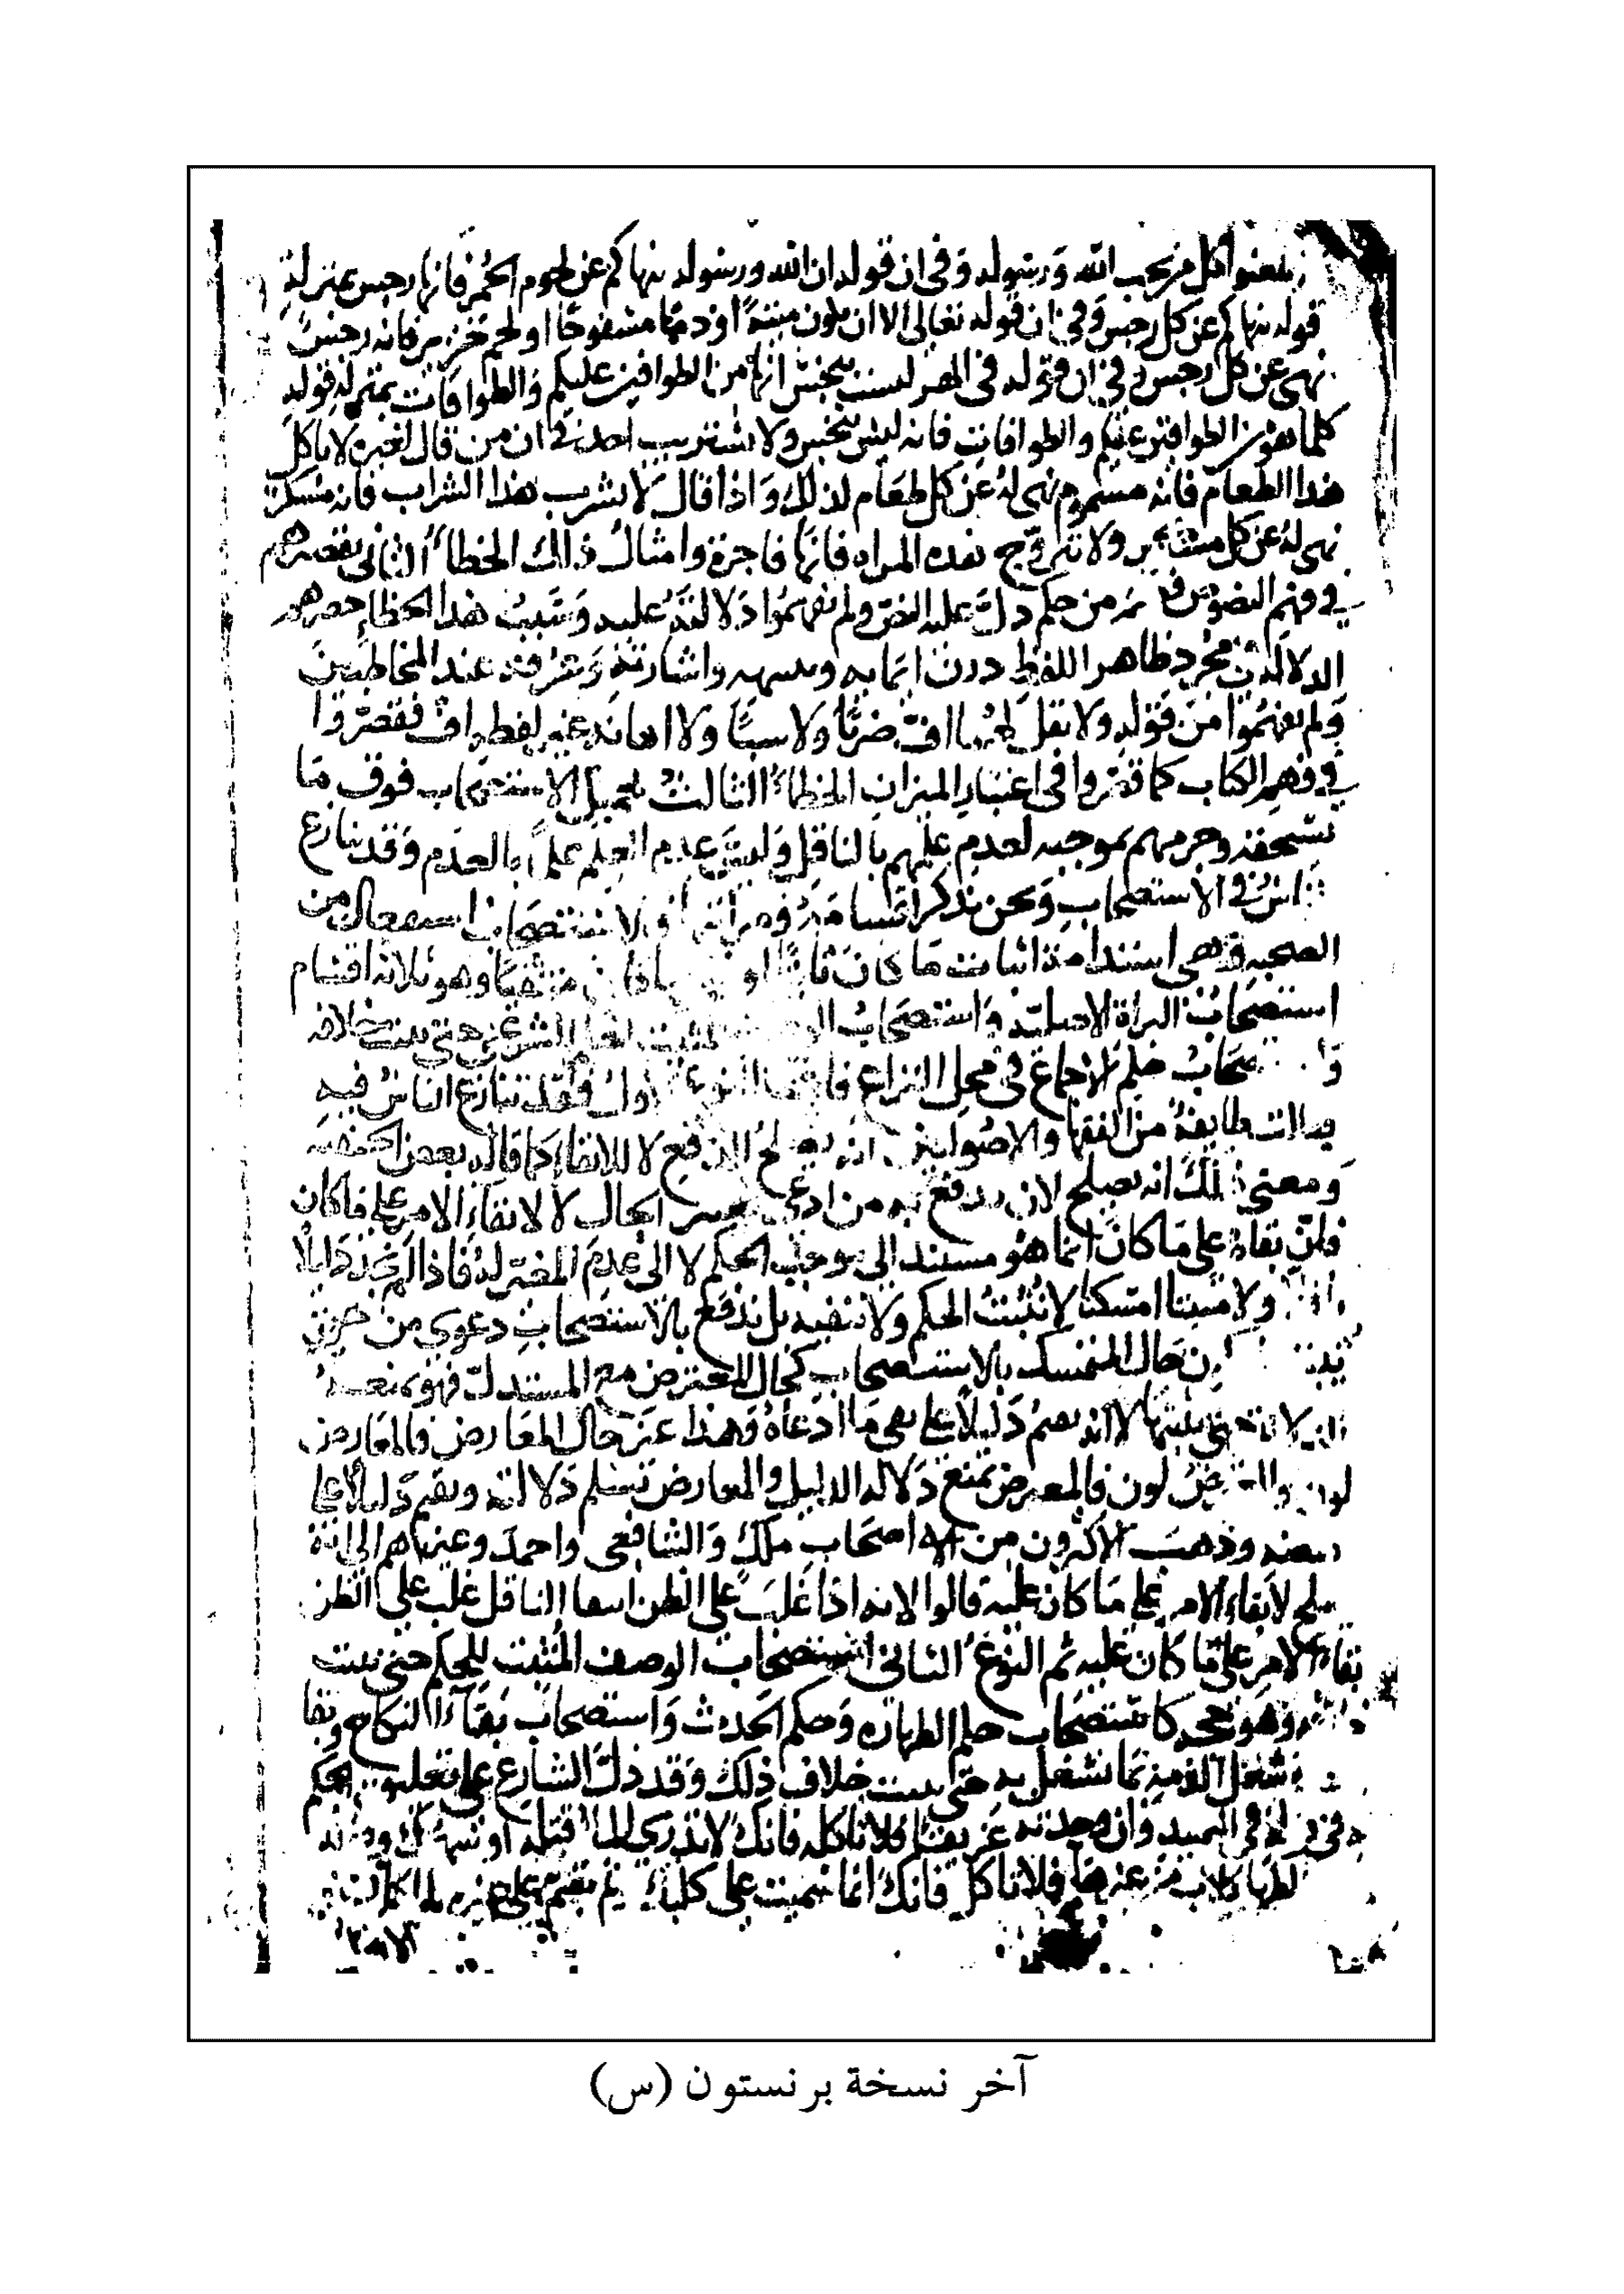 يلعنوا كل من يحب الله ورسوله وفي ان قوله ان الله ورسوله ينهاكم عن لحوم الحمر فانها رجس بمنزلة
قوله ينهاكم عن كل رجس وفي ان قوله تعالى الا ان يكون ميتة او دما مسفوحا او لحم خنزير فانه رجس
نهى عن كل رجس وفي ان قوله في الهر ليست بنجس انها من الطوافين عليكم والطوافات بمنزلة قوله
كلما هو من الطوافين عليكم والطوافات فانه ليس بنجس ولا يستريب احد في ان من قال لغيره لا تاكل
هذا الطعام فانه مسموم نهي له عن كل طعام كذلك واذا قال لا تشرب هذا الشراب فانه مسكر
نهي له عن كل مسكر ولا تتزوج هذه المراه فانها فاجرة وامثال ذلك الخطا الثاني تقصيرهم
في فهم النصوص فكم من حكم دل عليه النص ولم يفهموا دلالته عليه وسبب هذا الخطا حصرهم
الدلالة في مجرد ظاهر اللفظ دون ايمايه وتنبيهه واشارته وعرفه عند المخاطبين
ولم يفهموا من قوله ولا تقل لهما اف ضربا ولا سبا ولا اهانة غير لفظة اف فقصروا
في فهم الكتاب كما قصروا في اعتبار الميزان الخطا الثالث تحميل الاستصحاب فوق ما
يستحقه وجزمهم بموجبه لعدم علمهم بالناقل وليس عدم العلم علما بالعدم وقد تنازع
الناس في الاستصحاب ونحن نذكر اقسامه ومراتبها فالاستصحاب استفعال من
الصحبة وهي استدامة اثبات ما كان ثابتا او منتفيا وهو ثلاثة اقسام
استصحاب البراة الاصلية واستصحاب المثبت للحكم الشرعي حتى يثبت خلافه
واستصحاب حكم الاجماع في محل النزاع فاما النوع الاول فقد تنازع الناس فيه
فقالت طايفة من الفقها والاصوليين انه يصلح للدفع لا للابقاء كما قاله بعض الحنفية
ومعنى ذلك انه يصلح لان يدفع به من ادعى تغيير الحال لا لابقاء الامر على ما كان
فان بقاه على ما كان انما هو مستند الى موجب الحكم لا الى عدم المغير له فاذا لم نجد دليلا
ولا مثبتا امسكنا لا نثبت الحكم ولا ننفيه بل ندفع بالاستصحاب دعوى من
حال المتمسك بالاستصحاب كحال المعترض مع المستدل فهو يمنعه
الدلالة حتى يثبتها لا انه يقيم دليلا على نفي ما ادعاه وهذا غير حال المعارض فالمعارض
لون والمعترض لون فالمعترض يمنع دلالة الدليل والمعارض يسلم دلالته ويقيم دليلا على
نقيضه وذهب الاكثرون من اصحاب ملك والشافعي واحمد وغيرهم الى انه
يصلح لابقاء الامر على ما كان عليه قالوا لانه اذا غلب على الظن انتفا الناقل غلب على الظن
بقاء الامر على ما كان عليه ثم النوع الثاني استصحاب الوصف المثبت للحكم حتى يثبت
خلافه وهو حجة كاستصحاب حكم الطهارة وحكم الحدث واستصحاب بقاء النكاح وبقا
شغل الذمة بما تشغل به حتى يثبت خلاف ذلك وقد دل الشارع على تعليق الحكم
في قوله في الصيد وان وجدته غريقا فلا تاكله فانك لا تدري الماء قتله او سهمك
كلاب من غيرها فلا تاكل فانك انما سميت على كلبك ولم تسم على غيره
آخر نسخة برنستون (س)